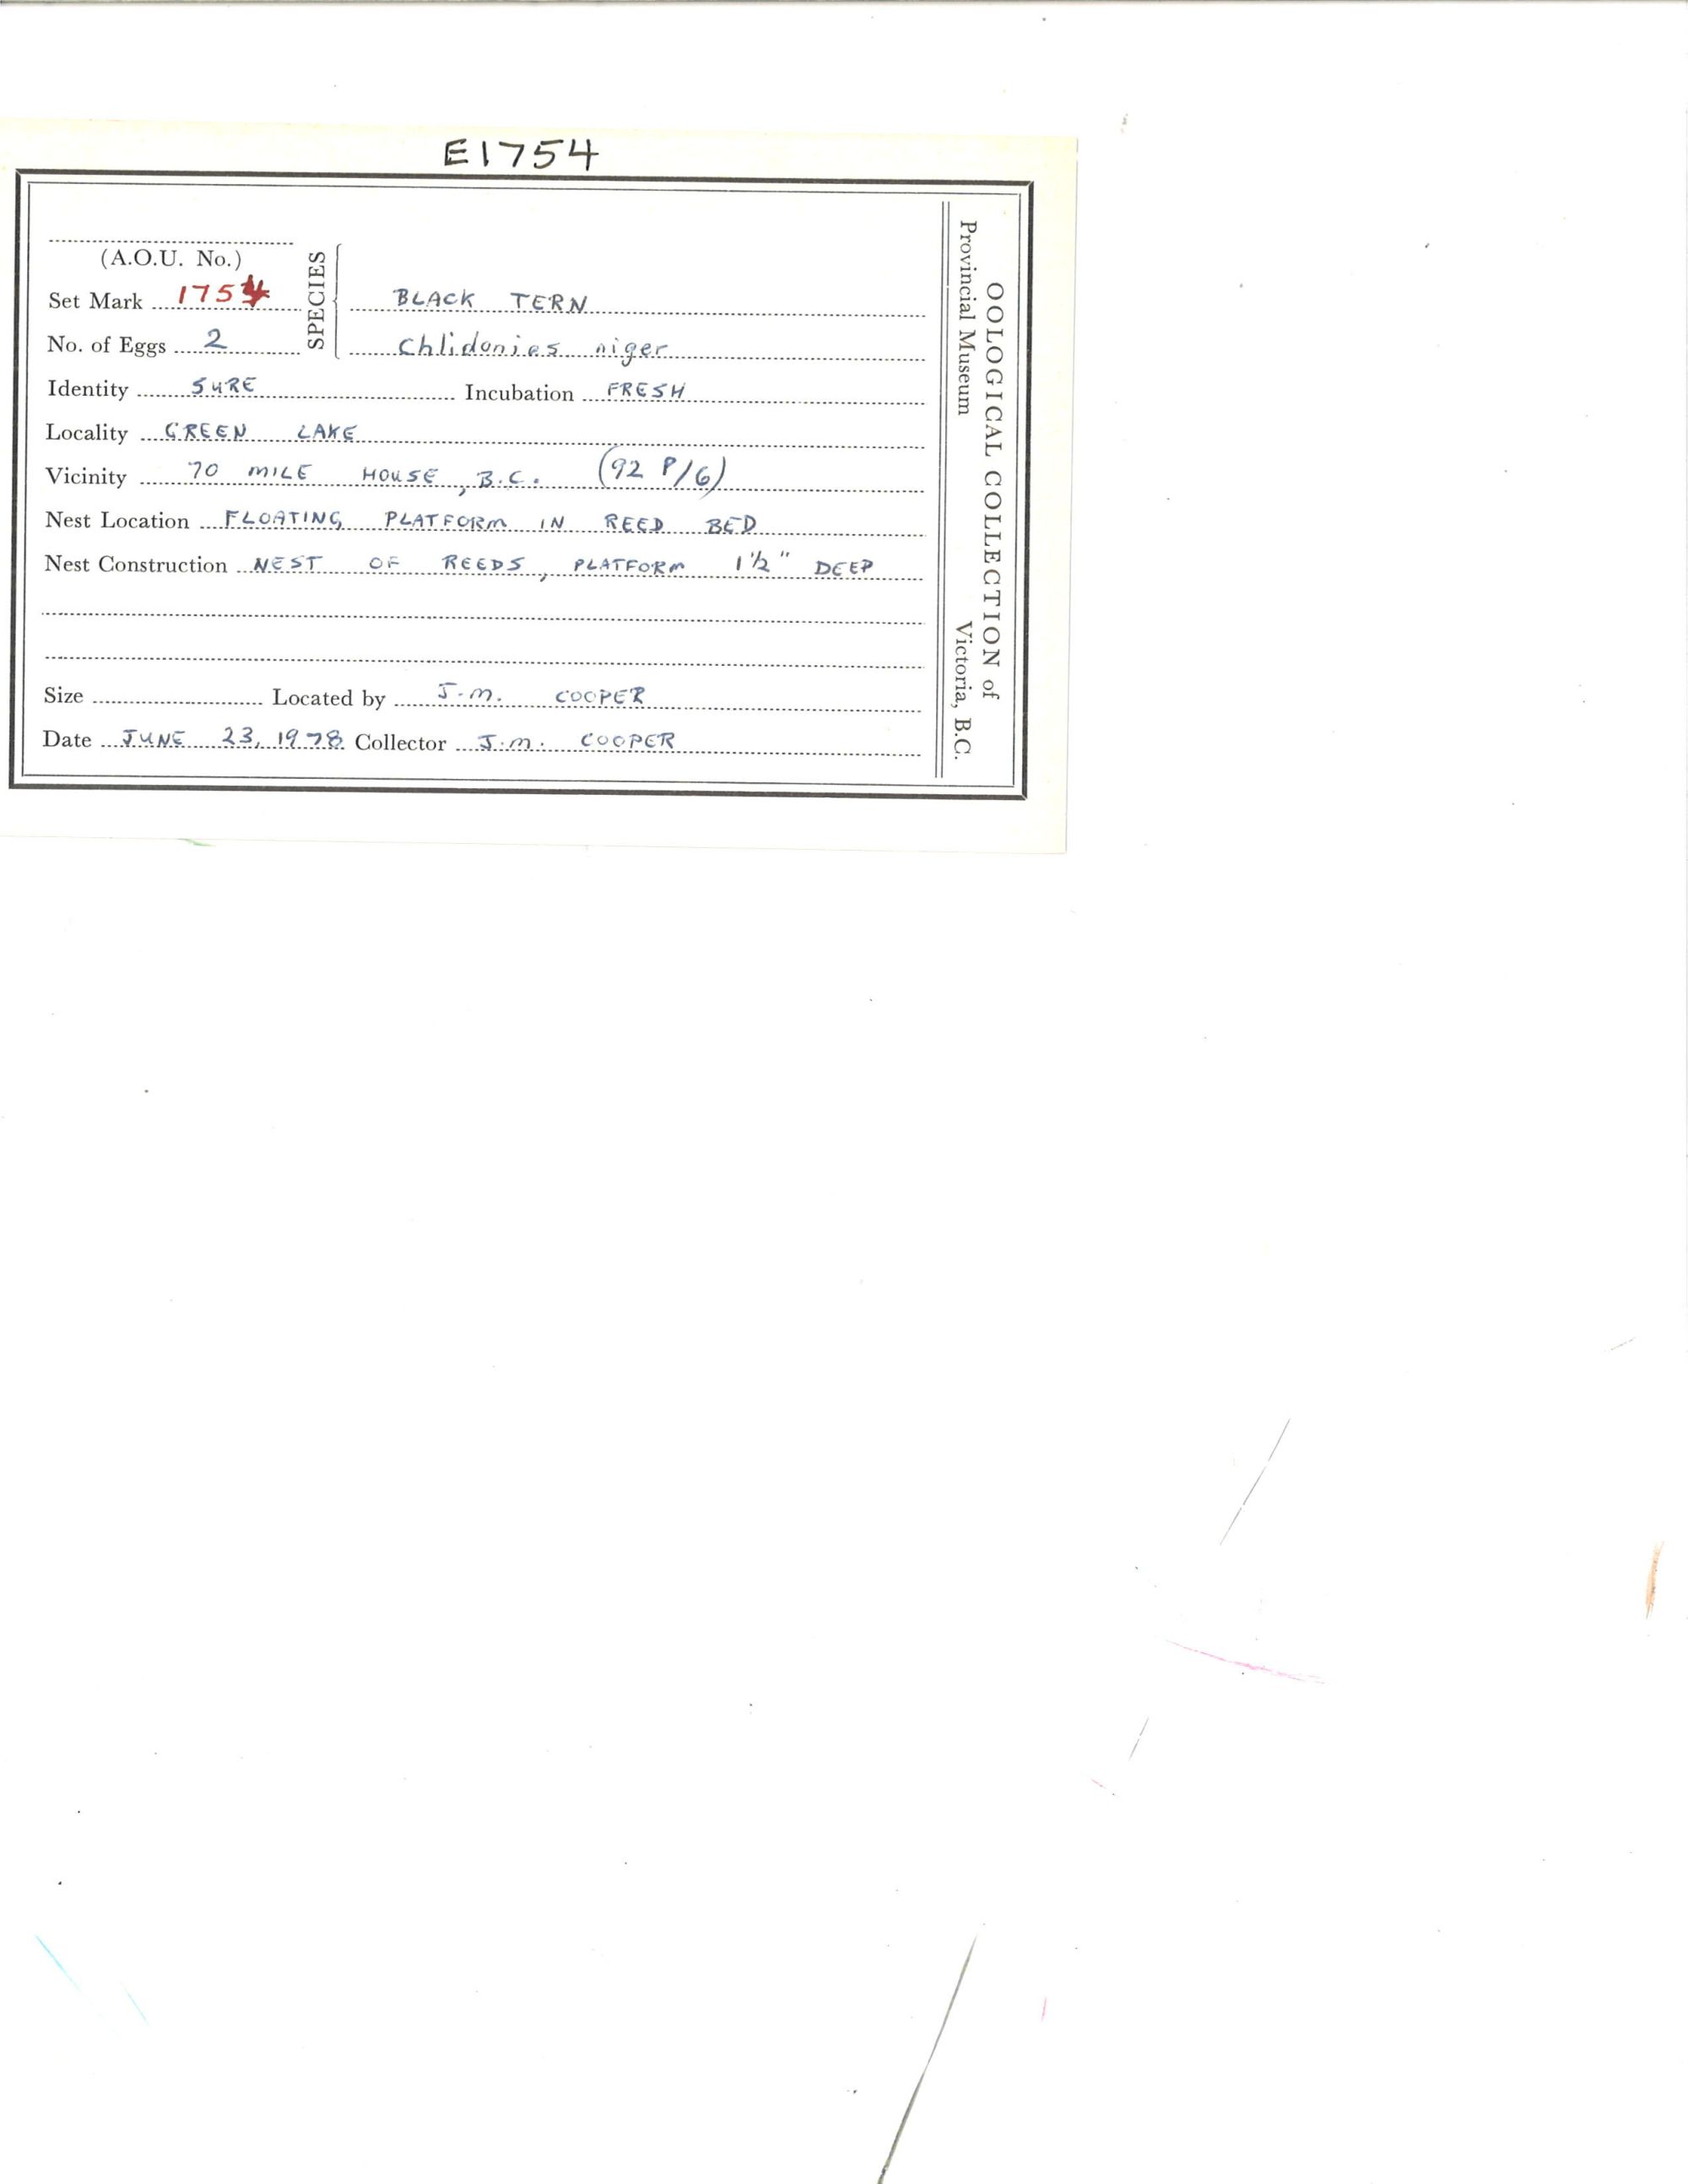 E1754
(A.O.U. No.)
Set Mark 1754
No. of Eggs 2
SPECIES
BLACK TERN
Chlidonias niger
Identity SURE Incubation FRESH
Locality GREEN LAKE
Vicinity 70 MILE HOUSE, B.C. (92 P/6)
Nest Location FLOATING PLATFORM IN REED BED
Nest Construction NEST OF REEDS, PLATFORM 1½" DEEP
Size Located by J.M. COOPER
Date JUNE 23, 1978 Collector J.M. COOPER
OOLOGICAL COLLECTION of
Provincial Museum Victoria, B.C.